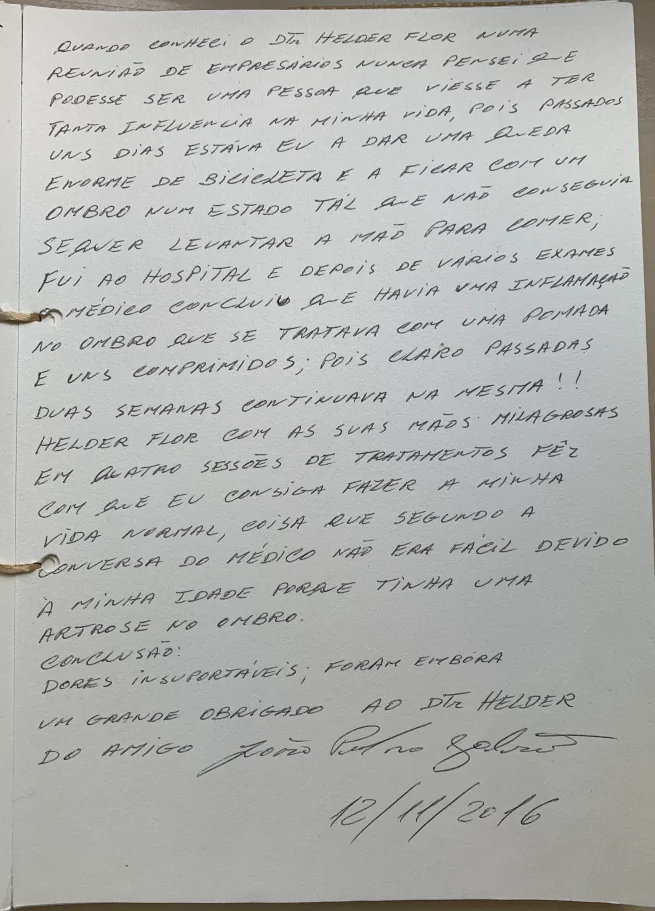 QUANDO CONHECI O DTR HELDER FLOR NUMA
REUNIÃO DE EMPRESÁRIOS NUNCA PENSEI QUE
PODESSE SER UMA PESSOA QUE VIESSE A TER
TANTA INFLUENCIA NA MINHA VIDA, POIS PASSADOS
UNS DIAS ESTAVA EU A DAR UMA QUEDA
ENORME DE BICICLETA E A FICAR COM UM
OMBRO NUM ESTADO TÁL QUE NÃO CONSEGUIA
SEQUER LEVANTAR A MÃO PARA COMER;
FUI AO HOSPITAL E DEPOIS DE VARIOS EXAMES
O MÉDICO CONCLUIU QUE HAVIA UMA INFLAMAÇÃO
NO OMBRO QUE SE TRATAVA COM UMA POMADA
E UNS COMPRIMIDOS; POIS CLARO PASSADAS
DUAS SEMANAS CONTINUAVA NA MESMA!!
HELDER FLOR COM AS SUAS MÃOS MILAGROSAS
EM QUATRO SESSÕES DE TRATAMENTOS FÊZ
COM QUE EU CONSIGA FAZER A MINHA
VIDA NORMAL, COISA QUE SEGUNDO A
CONVERSA DO MÉDICO NÃO ERA FÁCIL DEVIDO
À MINHA IDADE PORQUE TINHA UMA
ARTROSE NO OMBRO.
CONCLUSÃO:
DORES INSUPORTÁVEIS; FORAM EMBORA
UM GRANDE OBRIGADO AO DTR HELDER
DO AMIGO João
12/11/2016